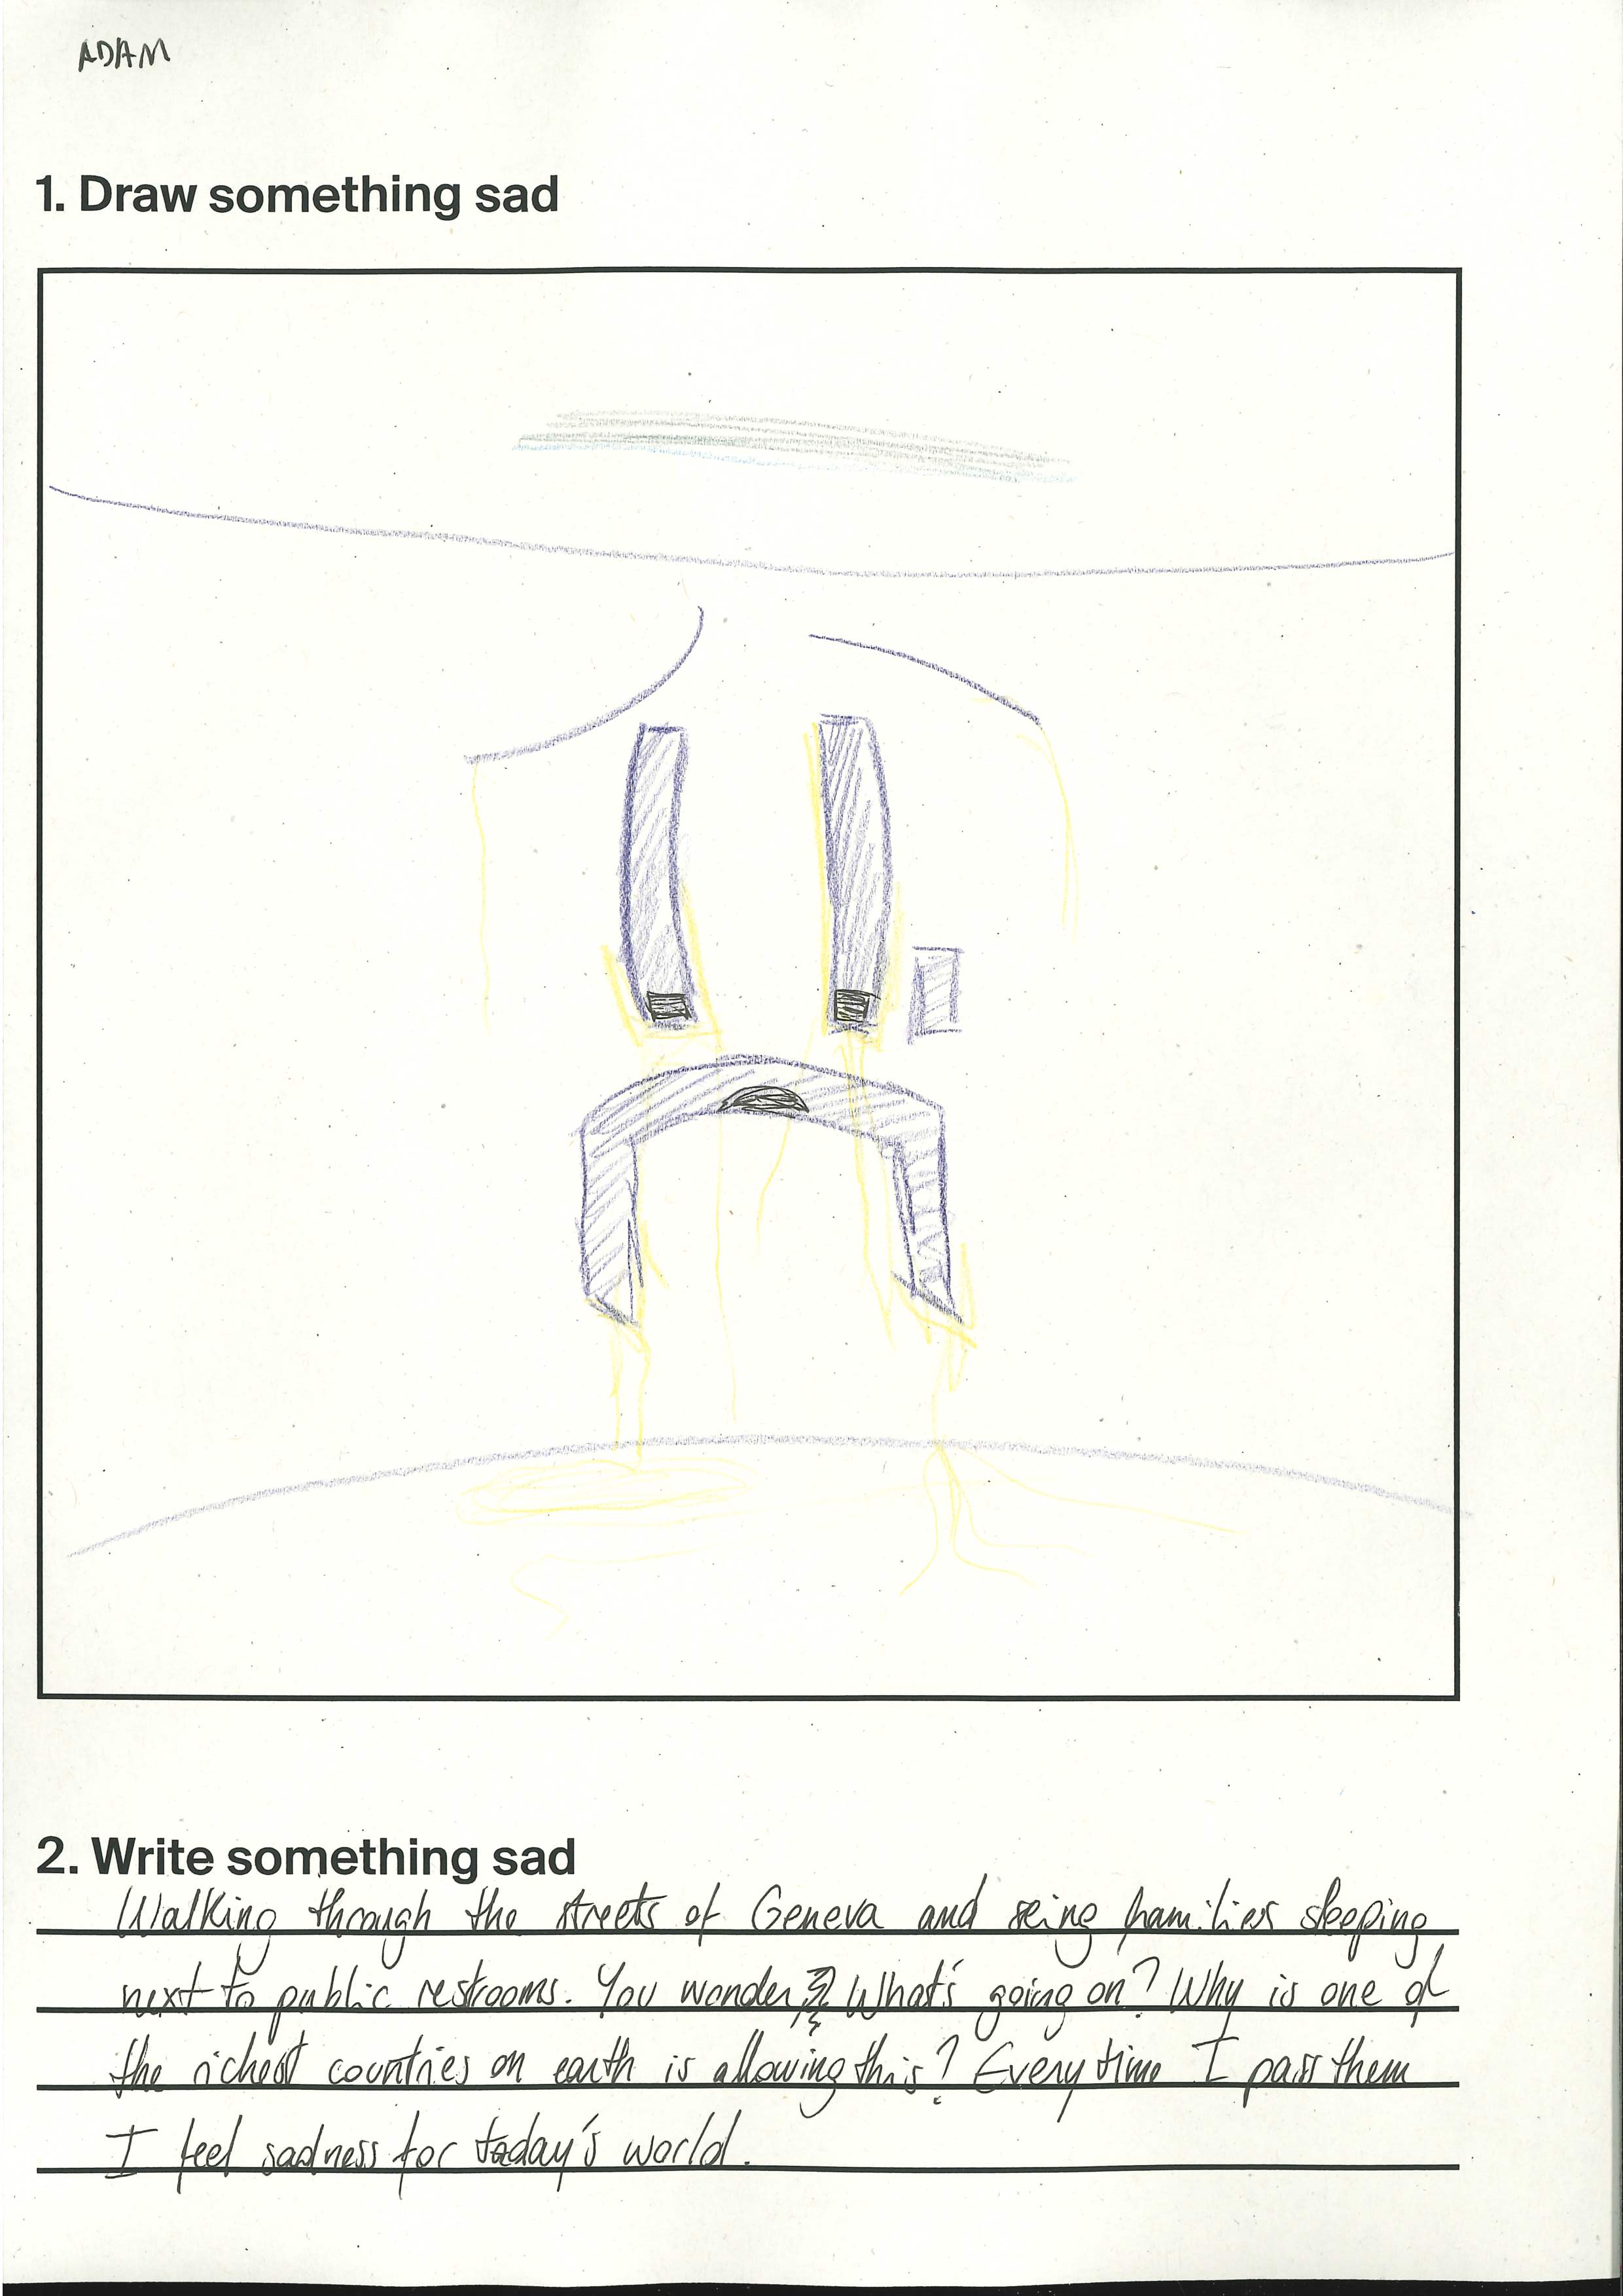 ADAM
1. Draw something sad
2. Write something sad
Walking through the streets of Geneva and seing families sleeping
next to public restrooms. You wonder What's going on? Why is one of
the richest countries on earth is allowing this? Every time I pass them
I feel sadness for today's world.